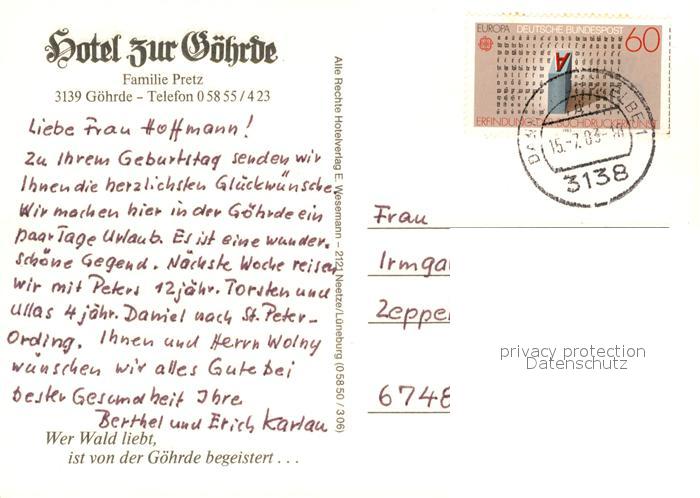 Hotel zur Göhrde
Familie Pretz
3139 Göhrde – Telefon 0 58 55 / 4 23
Liebe Frau Hoffmann!
Zu Ihrem Geburtstag senden wir
Ihnen die herzlichsten Glückwünsche.
Wir machen hier in der Göhrde ein
paar Tage Urlaub. Es ist eine wunder-
schöne Gegend. Nächste Woche reisen
wir mit Peters 12 jähr. Torsten und
Ullas 4 jähr. Daniel nach St. Peter-
Ording. Ihnen und Herrn Wolny
wünschen wir alles Gute bei
bester Gesundheit Ihre
Berthel und Erich Karlau
Wer Wald liebt,
ist von der Göhrde begeistert . . .
Alle Rechte Hotelverlag E. Wesemann – 2121 Neetze/Lüneburg (0 58 50 / 3 06)
EUROPA DEUTSCHE BUNDESPOST 60
15.-7.83-
3138
Frau
Irmga
Zeppe
6748
privacy protection
Datenschutz